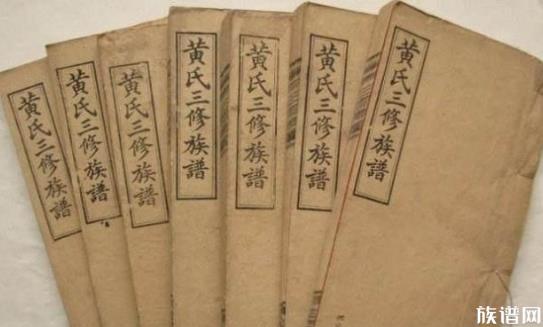 黄氏三修族譜
黄氏三修族譜
黄氏三修族譜
黄氏三修族譜
黄氏三修族譜
黄氏三修族譜
黄氏三修族譜
族谱网